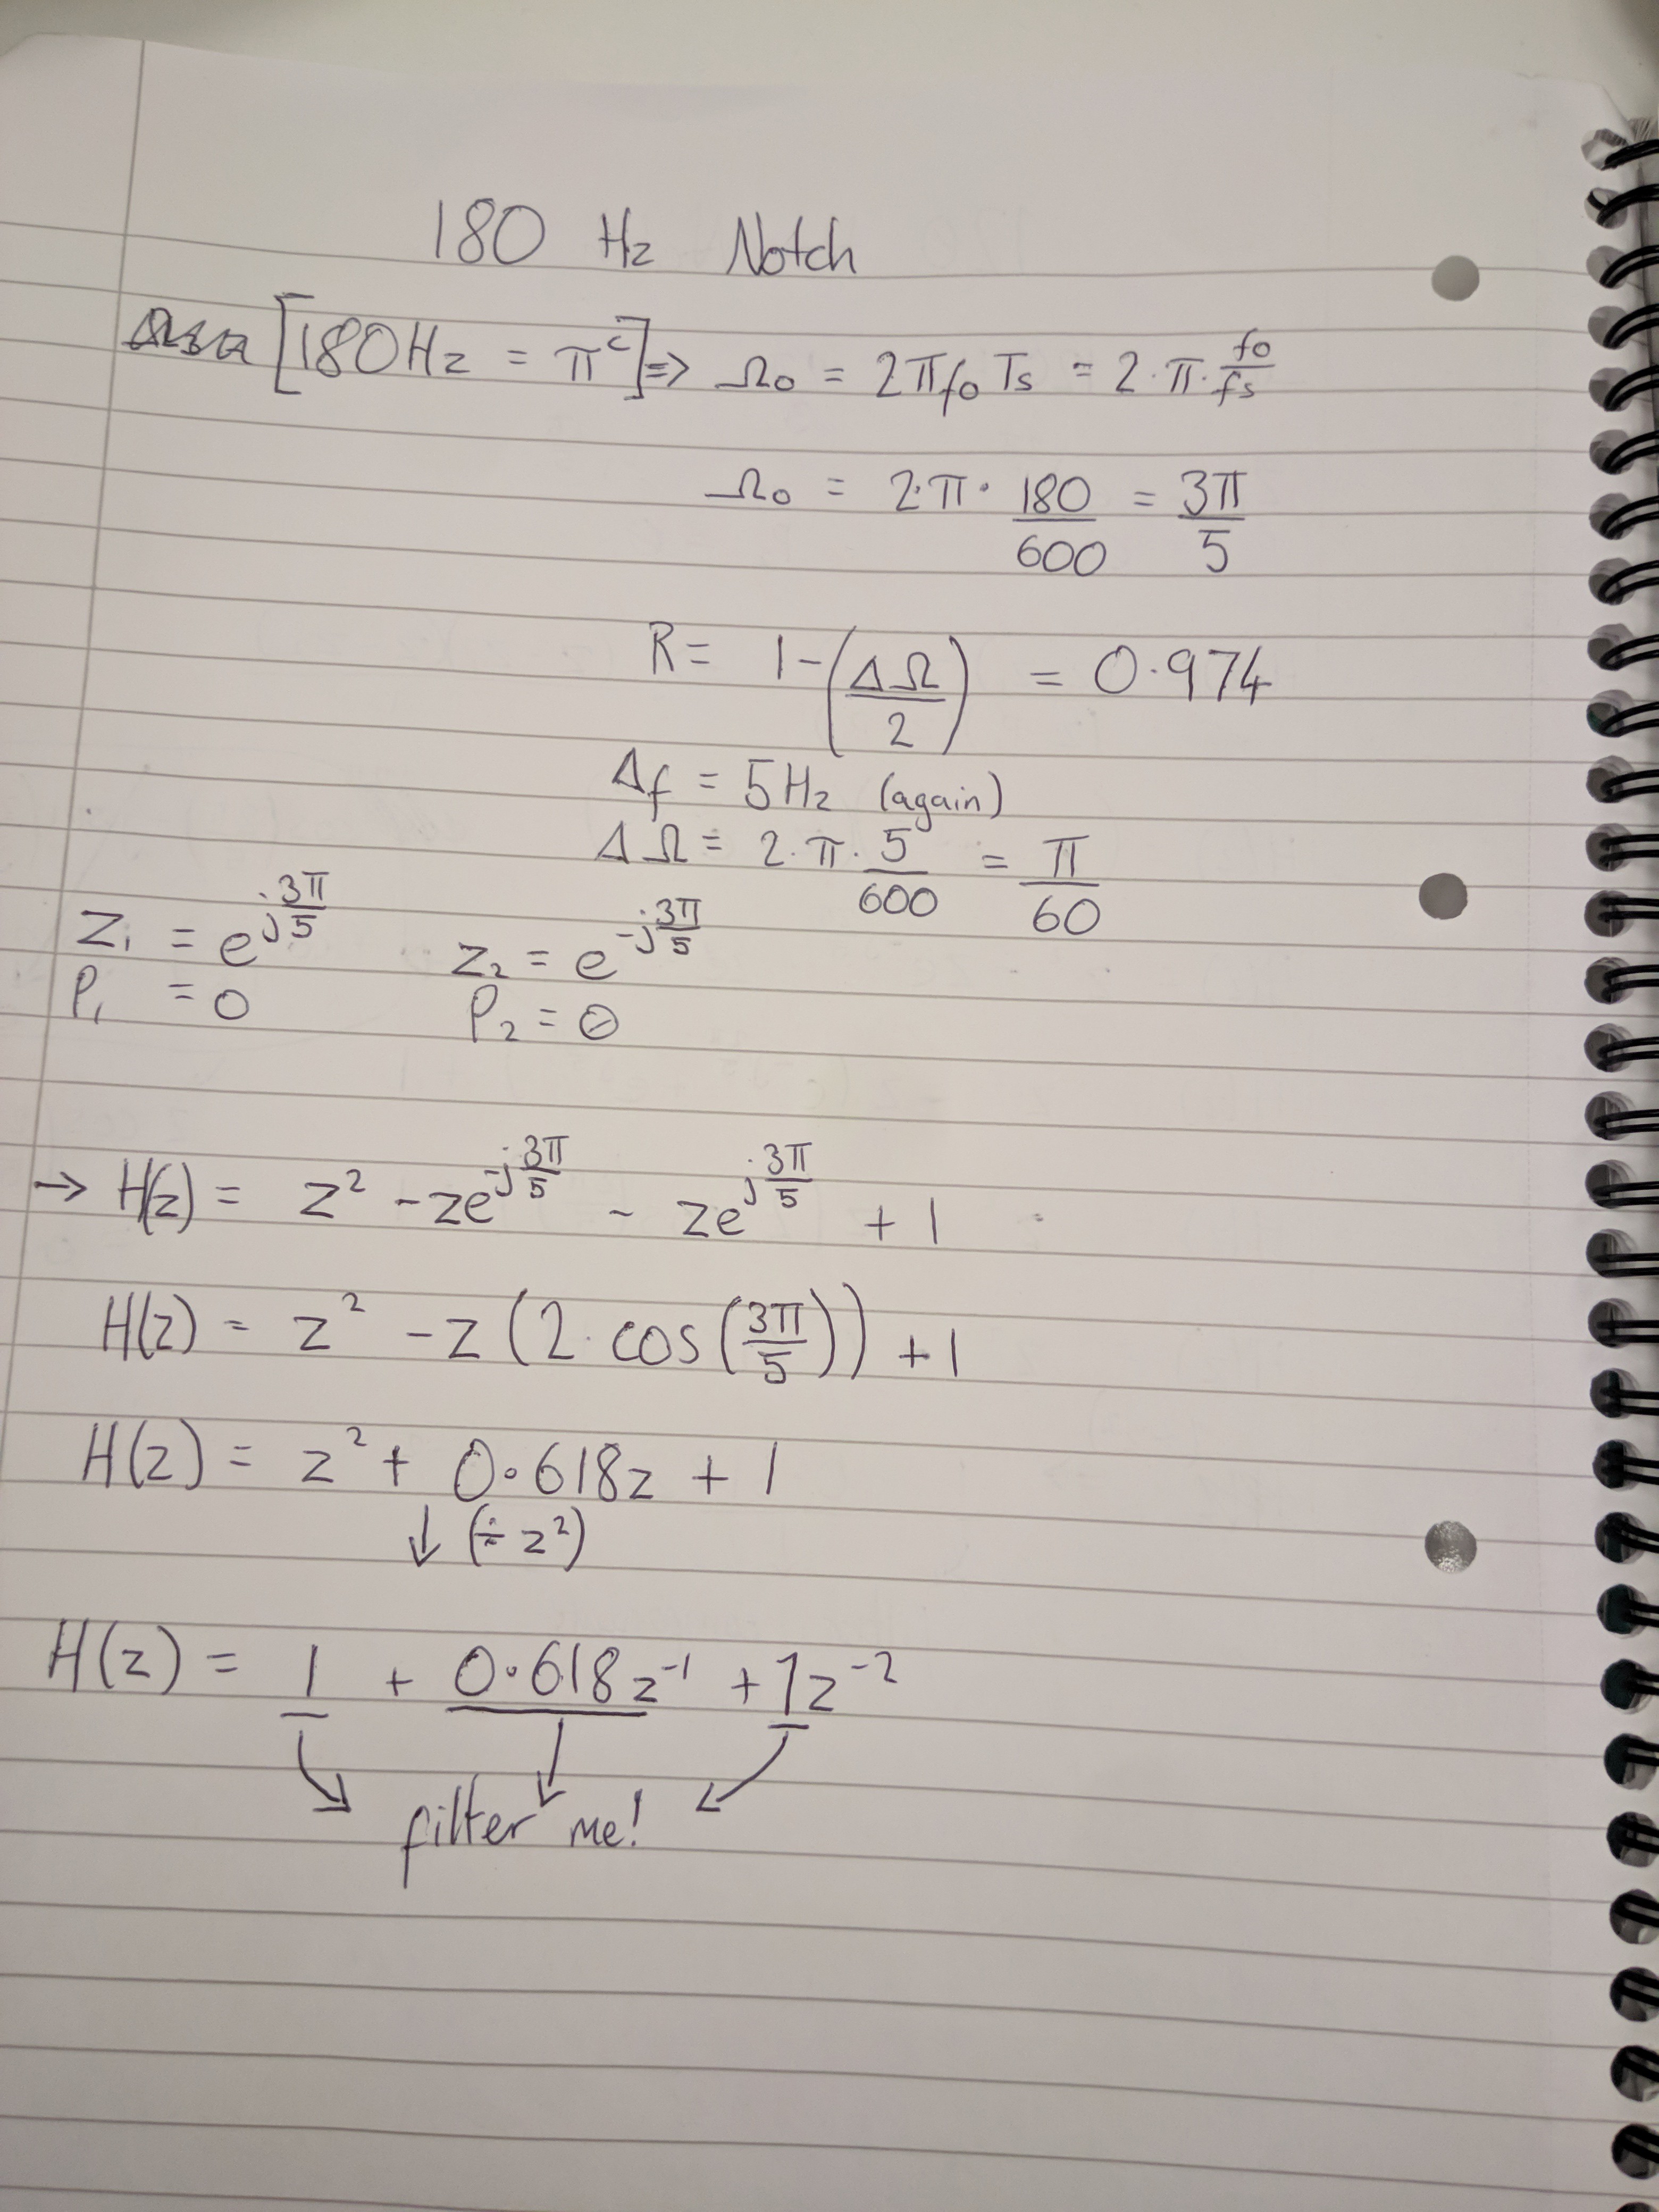 180 Hz Notch
[180Hz = π^c] => Ω₀ = 2πf₀Ts = 2·π·f₀/fs
Ω₀ = 2·π·180/600 = 3π/5
R = 1-(ΔΩ/2) = 0.974
Δf = 5Hz (again)
ΔΩ = 2·π·5/600 = π/60
Z₁ = e^(j3π/5) Z₂ = e^(-j3π/5)
P₁ = 0 P₂ = 0
→ H(z) = z² - ze^(-j3π/5) - ze^(j3π/5) + 1
H(z) = z² - z(2·cos(3π/5)) + 1
H(z) = z² + 0.618z + 1
↓ (÷ z²)
H(z) = 1 + 0.618z⁻¹ + 1z⁻²
filter me!